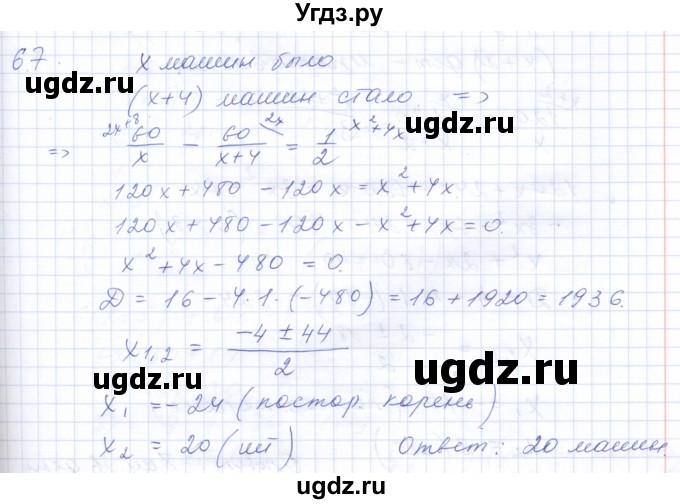 Угдз.ру
67. x машин было
(x+4) машин стало =>
=> 2x+8 60/x - 60/(x+4) 2x = 1/2 x²+4x
120x+480-120x=x²+4x
120x+480-120x-x²+4x=0.
x²+4x-480=0.
Д=16-4·1·(-480)=16+1920=1936.
x1,2 = (-4±44)/2
x1 =-24 (постор. корень)
x2 = 20 (шт) Ответ: 20 машин.
ugdz.ru
ugdz.ru
ugdz.ru
ugdz.ru
ugdz.ru
ugdz.ru
ugdz.ru
ugdz.ru
ugdz.ru